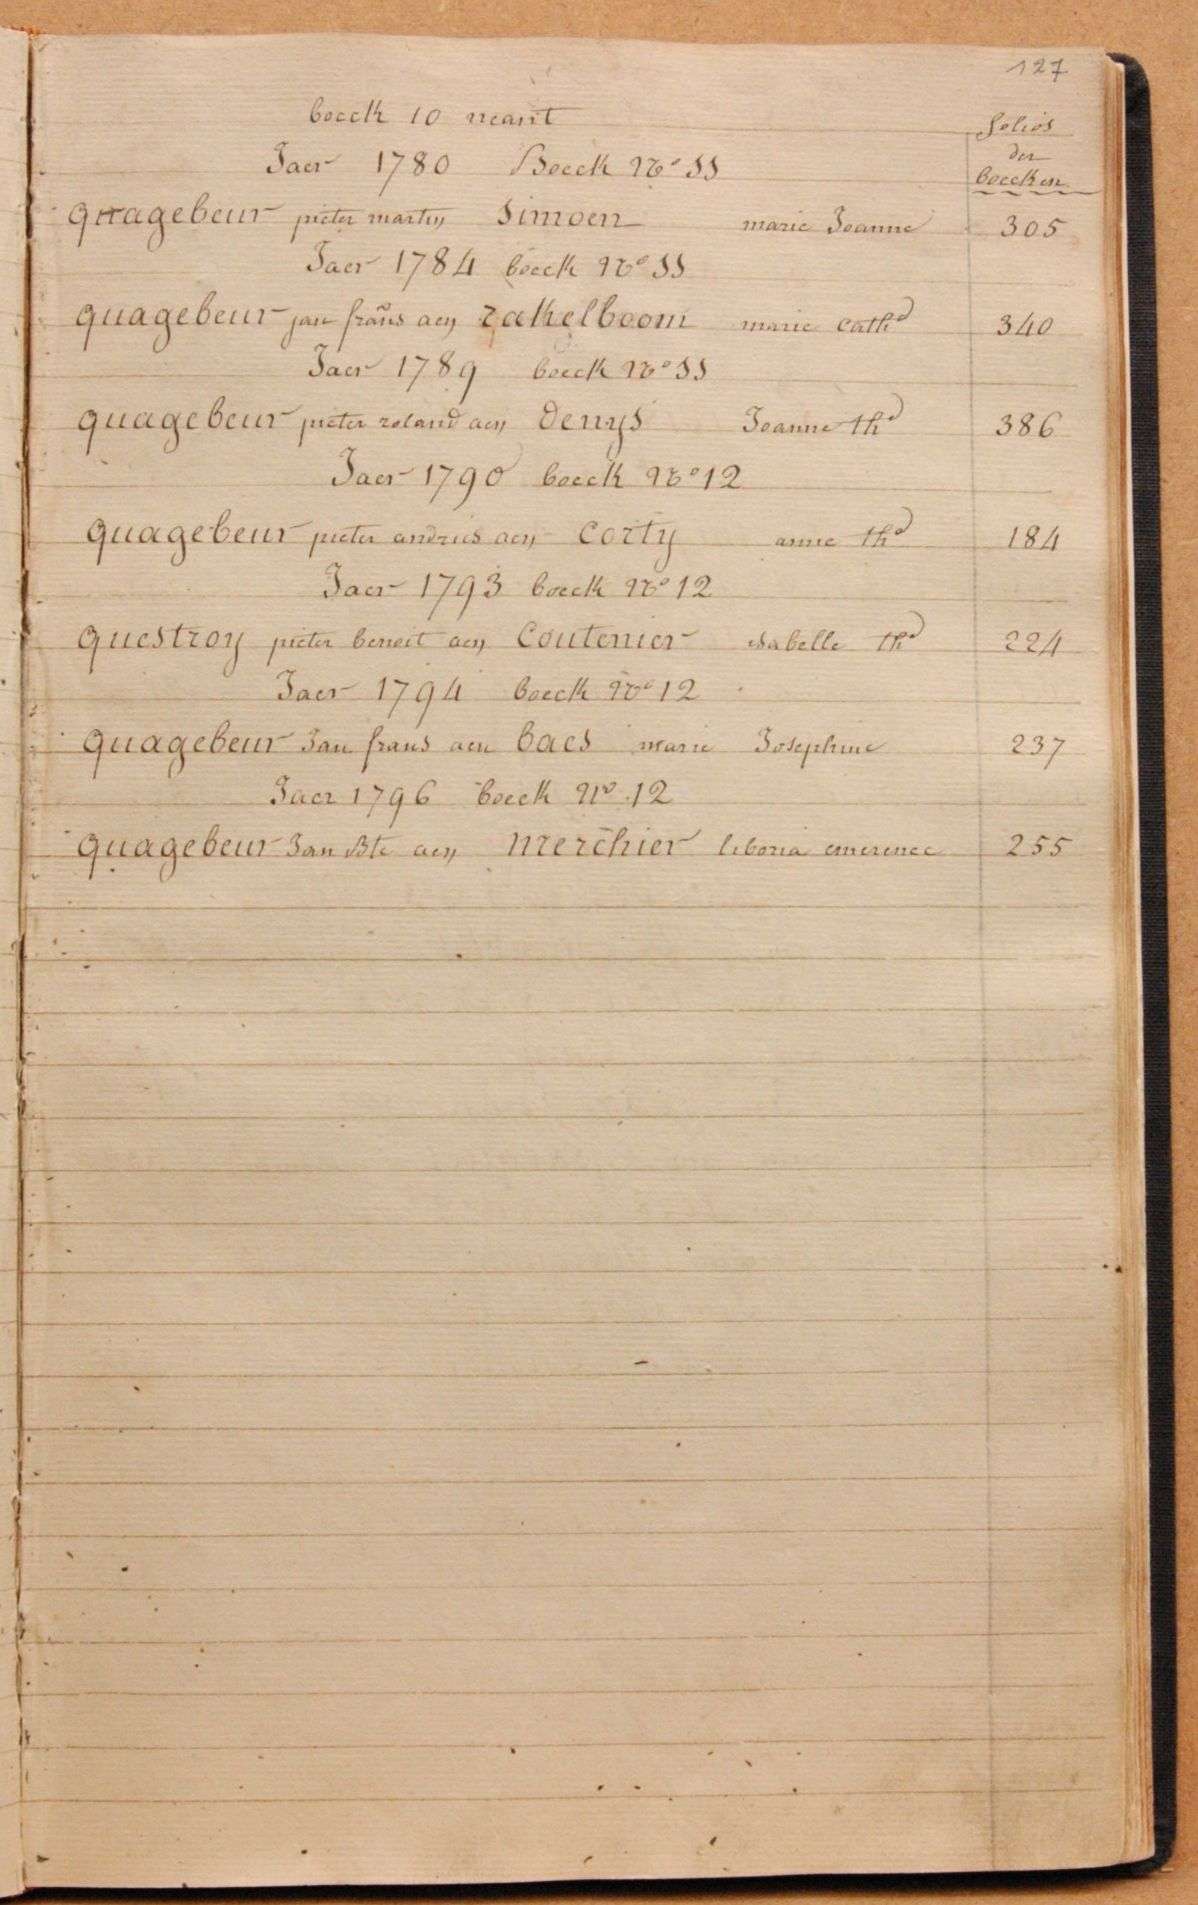 127
boeck 10 neant
folios
der
boecken
Jaer 1780 Boeck No 11
quagebeur pieter martin simoen marie Joanne 305
Jaer 1784 boeck No 11
quagebeur jan frans aen rakelboom marie cathᵃ 340
Jaer 1789 boeck No 11
quagebeur pieter roland aen denys Joanne thᵃ 386
Jaer 1790 boeck No 12
quagebeur pieter andries aen corty anne thᵃ 184
Jaer 1793 boeck No 12
questroy pieter benoit aen coutenier isabelle thᵃ 224
Jaer 1794 boeck No 12
quagebeur Jan frans aen baes marie Josephine 237
Jaer 1796 boeck No 12
quagebeur Jan Bte aen merchier liboria emerence 255